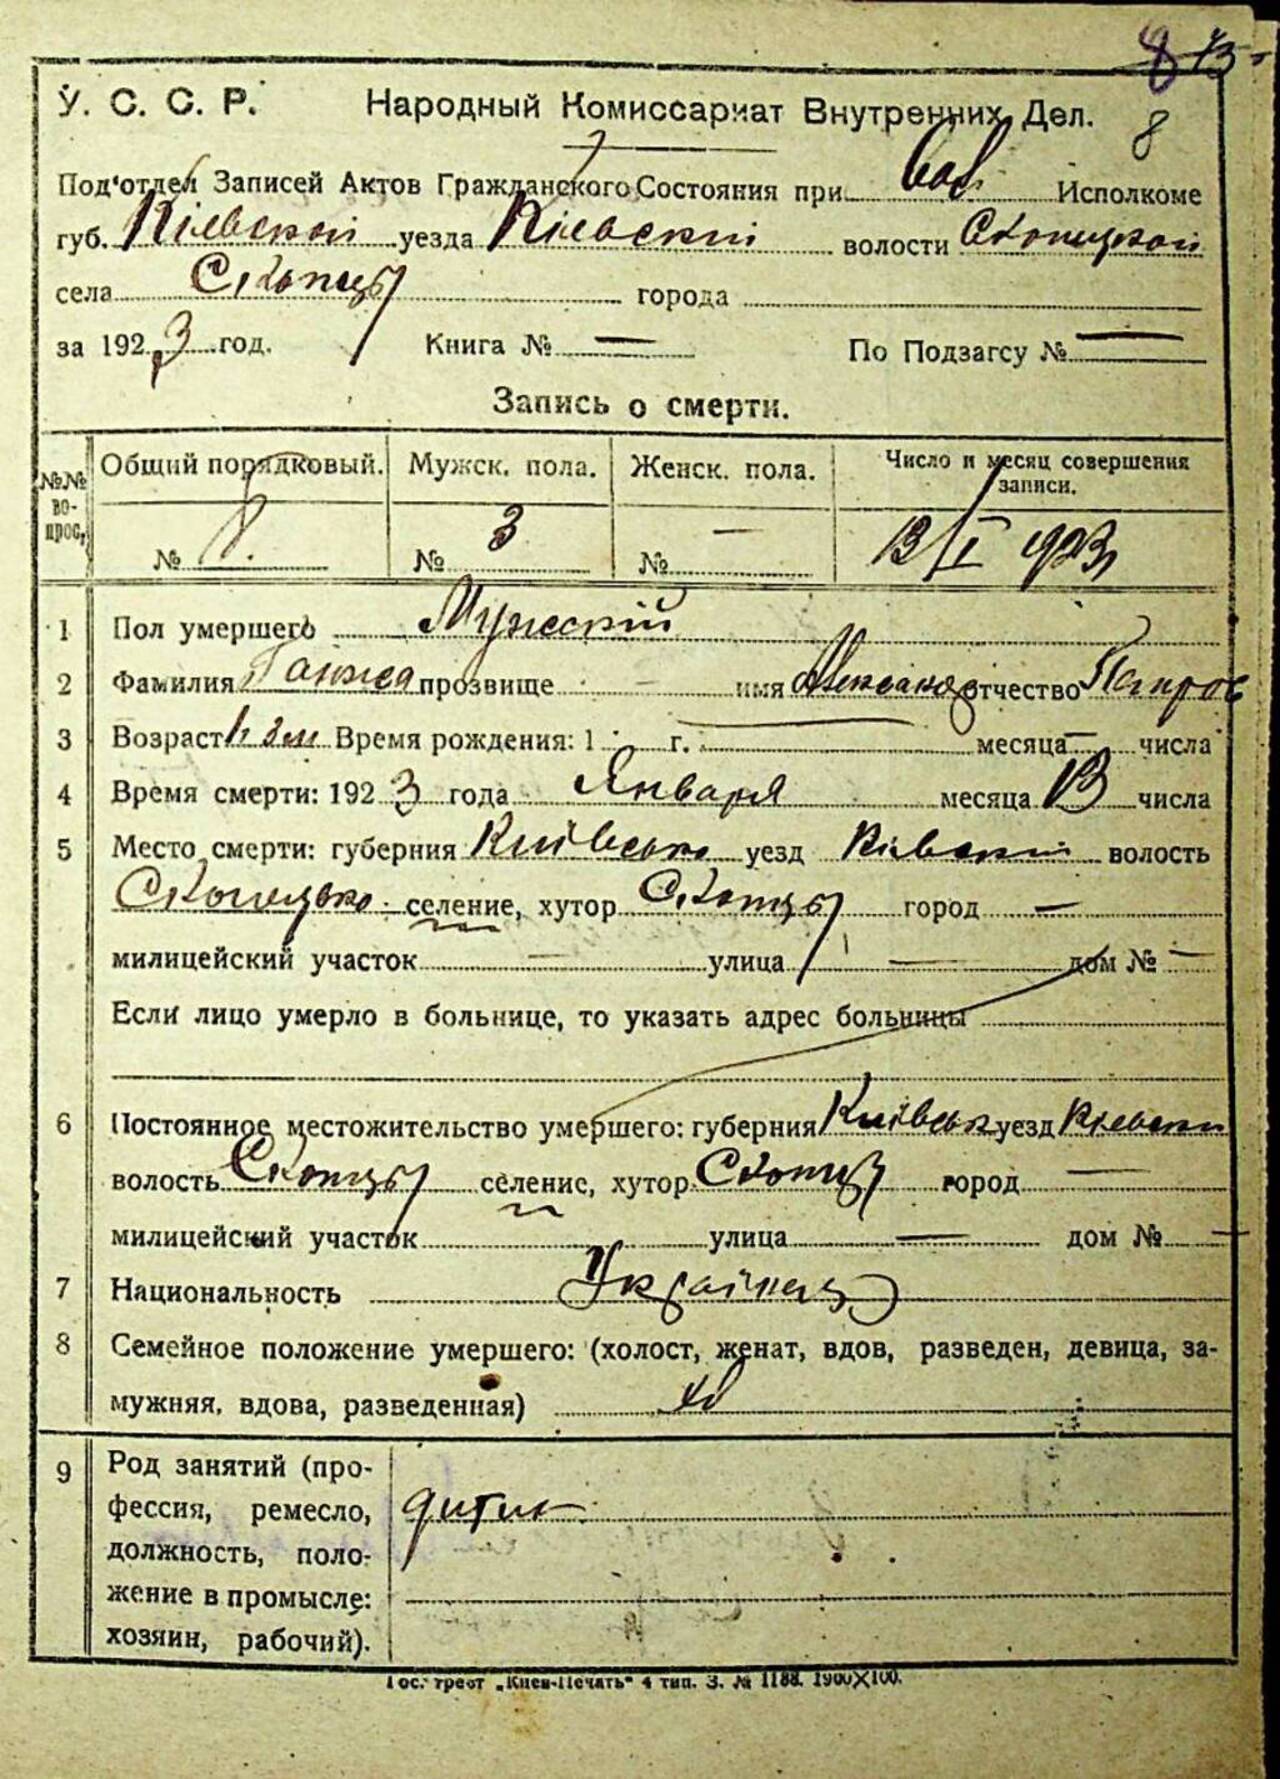 8 13
У. С. С. Р. Народный Комиссариат Внутренних Дел. 8
Под'отдел Записей Актов Гражданского Состояния при Исполкоме
губ. Кіевской уезда Кіевскій волости Скопецкой
села Скопцы города
за 1923 год. Книга № — По Подзагсу № —
Запись о смерти.
№№ вопрос. Общий порядковый. Мужск. пола. Женск. пола. Число и месяц совершения записи.
№ 8. № 3 № — 13/I 1923
1 Пол умершего Мужескій
2 Фамилия Ганжа прозвище — имя Александр отчество Петров
3 Возраст Время рождения: 1 г. месяца — числа
4 Время смерти: 1923 года Января месяца 13 числа
5 Место смерти: губерния Київсько уезд Кіевский волость
Скопецько селение, хутор Скопцы город —
милицейский участок — улица — дом № —
Если лицо умерло в больнице, то указать адрес больницы
6 Постоянное местожительство умершего: губерния Київськ уезд Кіевски
волость Скопцы селение, хутор Скопцы город —
милицейский участок улица — дом № —
7 Национальность Украінец
8 Семейное положение умершего: (холост, женат, вдов, разведен, девица, за-
мужняя, вдова, разведенная)
9 Род занятий (про-
фессия, ремесло,
должность, поло-
жение в промысле:
хозяин, рабочий).
Гос. трест „Киев-Печать" 4 тип. З. № 1188. 1900X100.